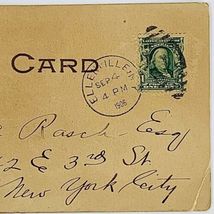 CARD
ELLENVILLE
SEP 4
4 PM
1906
Rasch Esq
2 E 3rd St
New York City